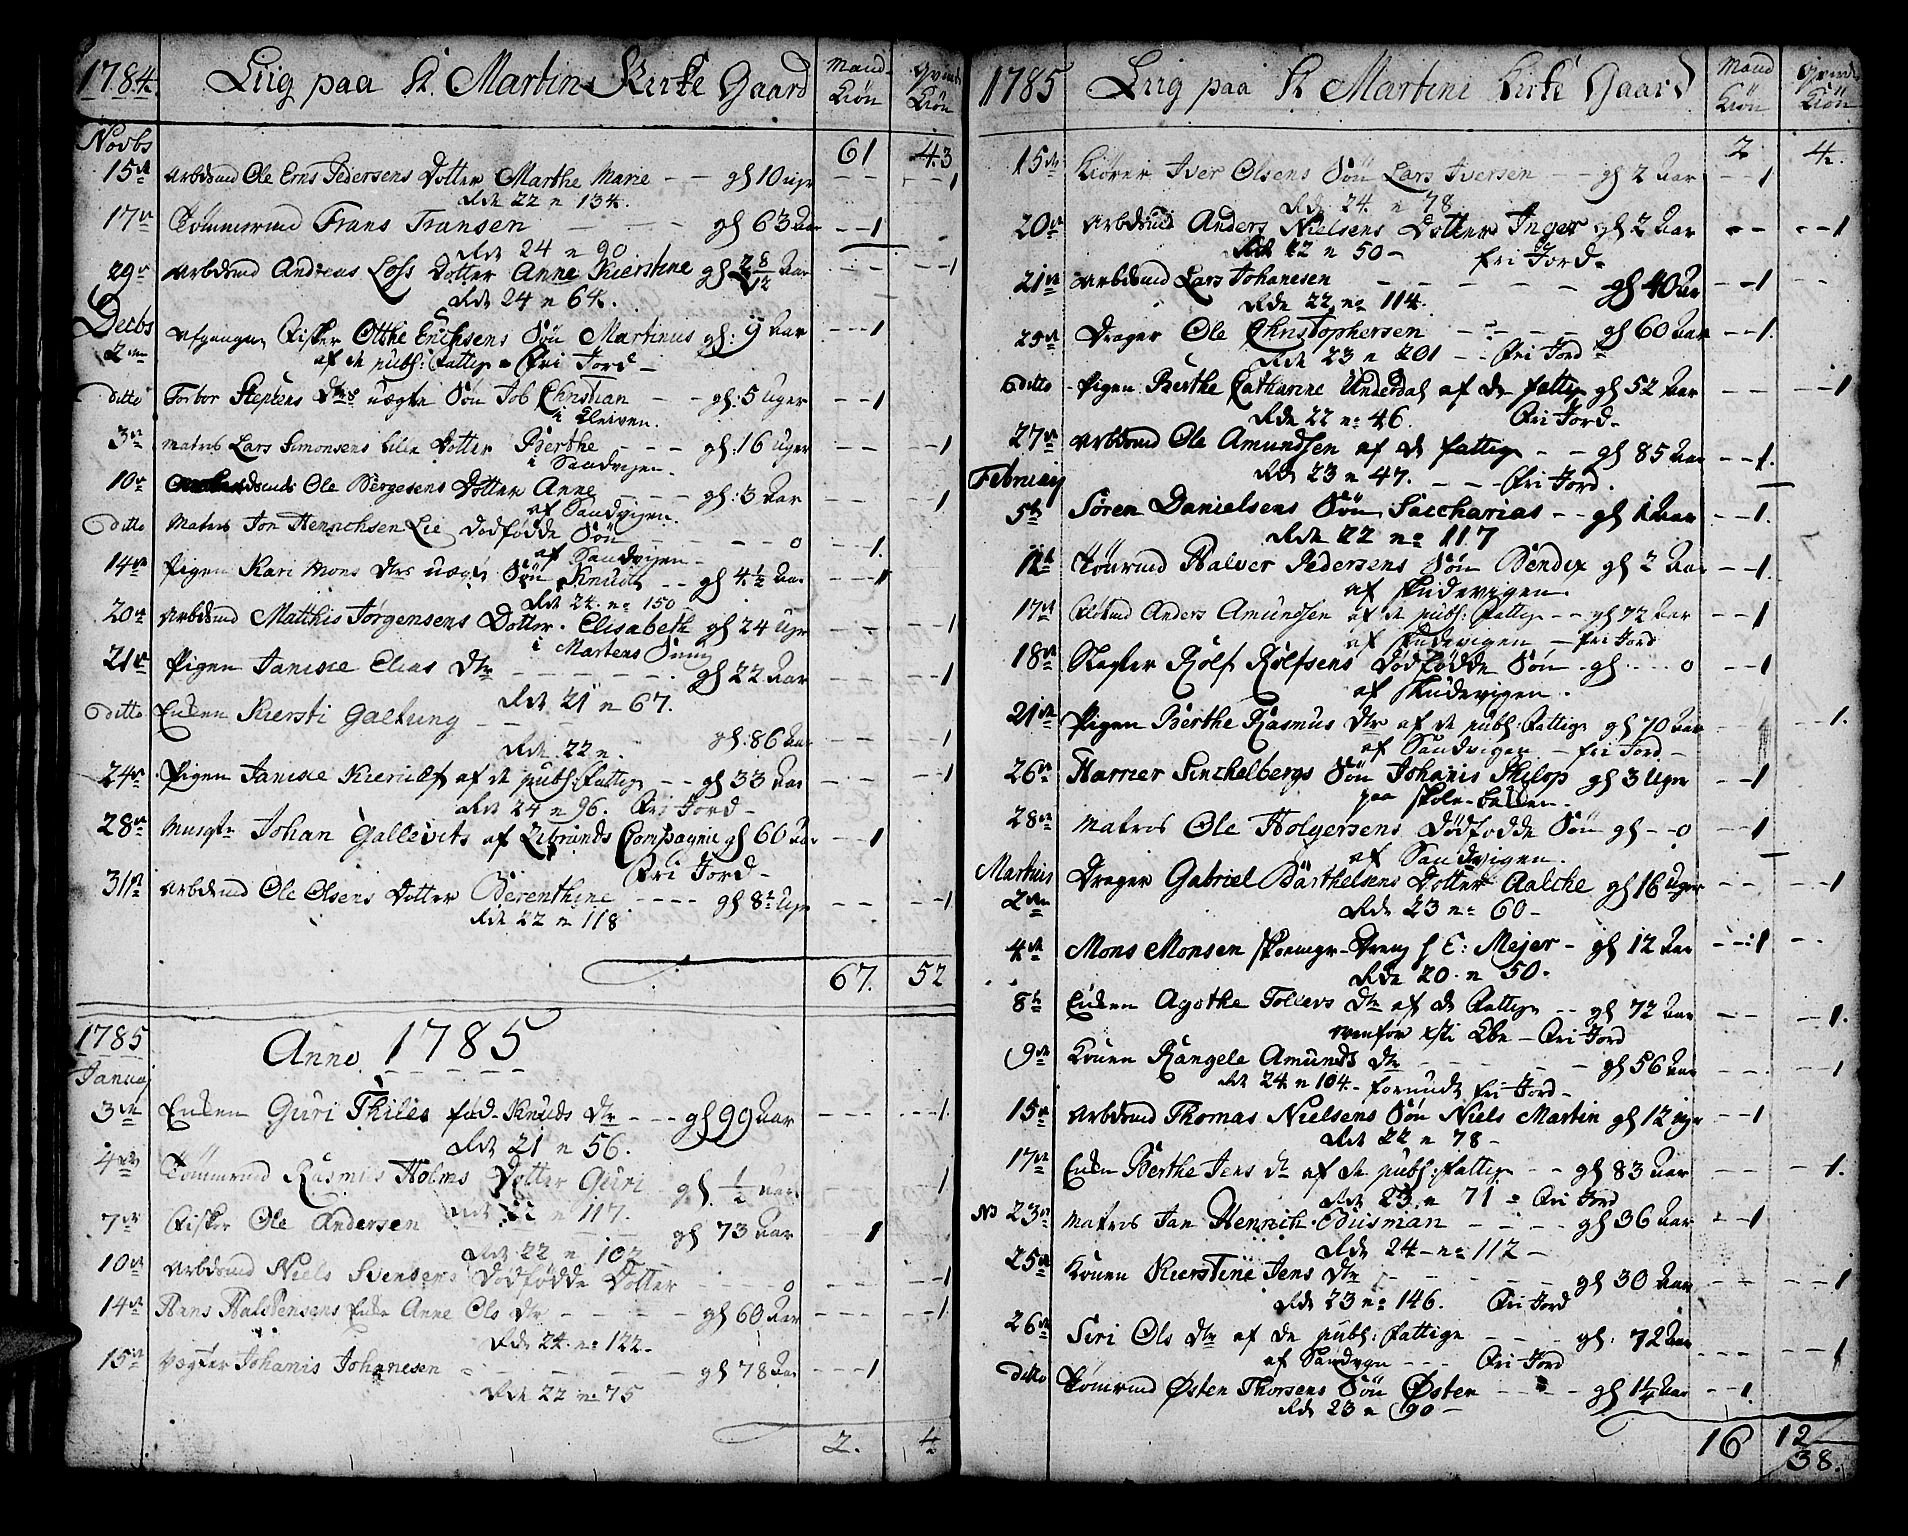 1784 Liig paa St Martins Kirke Gaard Mand Kiön Qvinde Kiön
Novbs 61 43
15de Arbdsmd Ole Erns Pedersens Dotter Marthe Marie -- gl 10 ugr -- --1
Rde 22 n 134.
17de Tömmermd Frans Fransen --- gl 63 Aar --1
Rde 24 n 90
29de Arbdsmd Andreas Loss Dotter Anne Kierstine gl 2 8/12 Aar -- --1
Rde 24 n 64.
Decbs
2den Afgangen Fisker Otthe Erichsens Sön Martinus gl: 9 Aar --1
af de publ: Fattige - Fri Jord -
ditto Torbor Stephens Dtrs uægte Sön Job Christian -- gl: 5 Uger --1
i Kleiven.
3de Matros Lars Simonsens lille Dotter Berthe -- gl: 16 Uger -- --1
i Sandvigen.
10de Ole Börgesens Dotter Anne --- gl: 3 Aar -- --1
af Sandvigen.
ditto Matros Jon Henrichsen Lie Dödfödde Sön --- 0 --1.
af Sandvigen -
14de Pigen Kari Mons Dtrs uægte Sön Knud -- gl 4½ Aar --1
Rde 24. n: 150
20de Arbdsmd Matthis Jörgensens Dotter Elisabeth gl 24 Ugr -- --1
i Martens Smug
21de Pigen Janicke Elias Dtr --- gl 22 Aar -- --1
Rde 21 n 67.
ditto Enken Kiersti Galtung -- gl: 86 Aar -- --1
Rde 22 n.
24de Pigen Janicke Kierulf af de publ: Fattige -- gl 33 Aar -- --1
Rde 24 n 96. Fri Jord -
28de Musqtr Johan Gallevits af Compagnie gl 60 Aar --1
Fri Jord -
31te Arbdsmd Ole Olsens Dotter Berenthine ---- gl 8½ Ugr -- --1
Rde 22 n 118
67. 52
1785 Anno 1785
Januaj
3de Enken Guri Thiles föd Knuds Dtr --- gl 99 Aar --- ---1.
Rde 21 n 56.
4de Tömrmd Rasmus Holms Dotter Guri gl. ½ Aar --1
Rde 22 n 117.
7de Fisker Ole Andersen gl 73 Aar --1
Rde 22 n 102
10de Arbdsmd Niels Svensens Dödfödde Dotter --- 0 -- --1
14de Hans Halstensens Enke Anne Ols Dtr --- gl 60 Aar --- --1.
Rde 24. n: 122.
15de Vægter Johanis Johanesen --- gl 78 Aar ---1
Rde 22 n: 75
2. 4
1785 Liig paa St Martini Kirke Gaard Mand Kiön Qvinde Kiön
2 4.
15de Kiörer Iver Olsens Sön Lars Iversen -- gl 2 Aar --1
Rde 24 n 78.
20de Arbdsmd Anders Nielsens Dotter Inger gl 2 Aar -- --1
Rde 22 n 50 - fri Jord -
21de Arbdsmd Lars Johanesen --- gl 40 Aar --1
Rde 22 n: 114.
25de Drager Ole Christophersen --- gl 60 Aar --1.
Rde 23 n 201 -- Fri Jord
ditto Pigen Berthe Catharine Underdal af de fattige gl 52 Aar -- --1
Rde 22 n: 46. Fri Jord -
27de Arbdsmd Ole Amundsen af de fattige -- gl 85 Aar --1.
Rde 23 n 47. --- Fri Jord.
Februaj
5te Sören Danielsens Sön Saccharias -- gl 1 Aar --1.
Rde 22 n: 117
12te Tömrmd Halver Pedersens Sön Bendix gl 2 Aar --1.
af Skudevigen.
17de Anders Amundsen af de publ: Fattige -- gl 72 Aar --1
af Skudevigen - fri Jord
18de Slagter Rolf Rolfsens Dödfödde Sön gl --- 0 --1
af Skudevigen.
21de Pigen Berthe Rasmus Dtr af de publ: Fattige gl 70 Aar --1.
af Sandvigen - fri Jord -
26de Sinchelbergs Sön Johanis Philop gl 3 Ugr --1
paa Skole-bakken.
28de Matros Ole Holgersens Dödfodde Sön gl -- 0 --1
af Sandvigen.
Martius
2den Drager Gabriel Barthelsens Dotter Aalche gl 16 Uger -- --1
Rde 23 n: 60 -
4de Mons Monsen Skoemgr-Dreng f E: Mejer - gl 12 Aar --:1 --.
Rde 20. n 50.
8de Enken Agothe Tollevs Dtr af de Fattige -- gl 72 Aar -- --1.
ovenfor - Fri Jord
9de Konen Rangele Amunds Dtr --- gl 56 Aar -- --1
Rde 24. n 104 - forundt fri Jord -
15de Arbdsmd Thomas Nielsens Sön Niels Martin gl 12 ugr --1
Rde 22 n 78 -
17de Enken Berthe Jens dtr af de publ: Fattige -- gl 83 Aar -- --1.
Rde 23. n 71 = Fri Jord
NB 23de Matros Jan Henrich Busman ---- gl 36 Aar --1
Rde 24 - n: 112 -
25de Konen Kierstine Jens Dtr --- gl 30 Aar -- --1
Rde 23 n: 146. Fri Jord
26de Siri Ols Dtr af de publ: Fattige --- gl: 72 Aar --- --1
af Sandvgn --- Fri Jord
ditto Tömrmd Østen Thorsens Sön Østen ---- gl 1¼ Aar --1.
Rde 23 n 90 -
16 12
38.